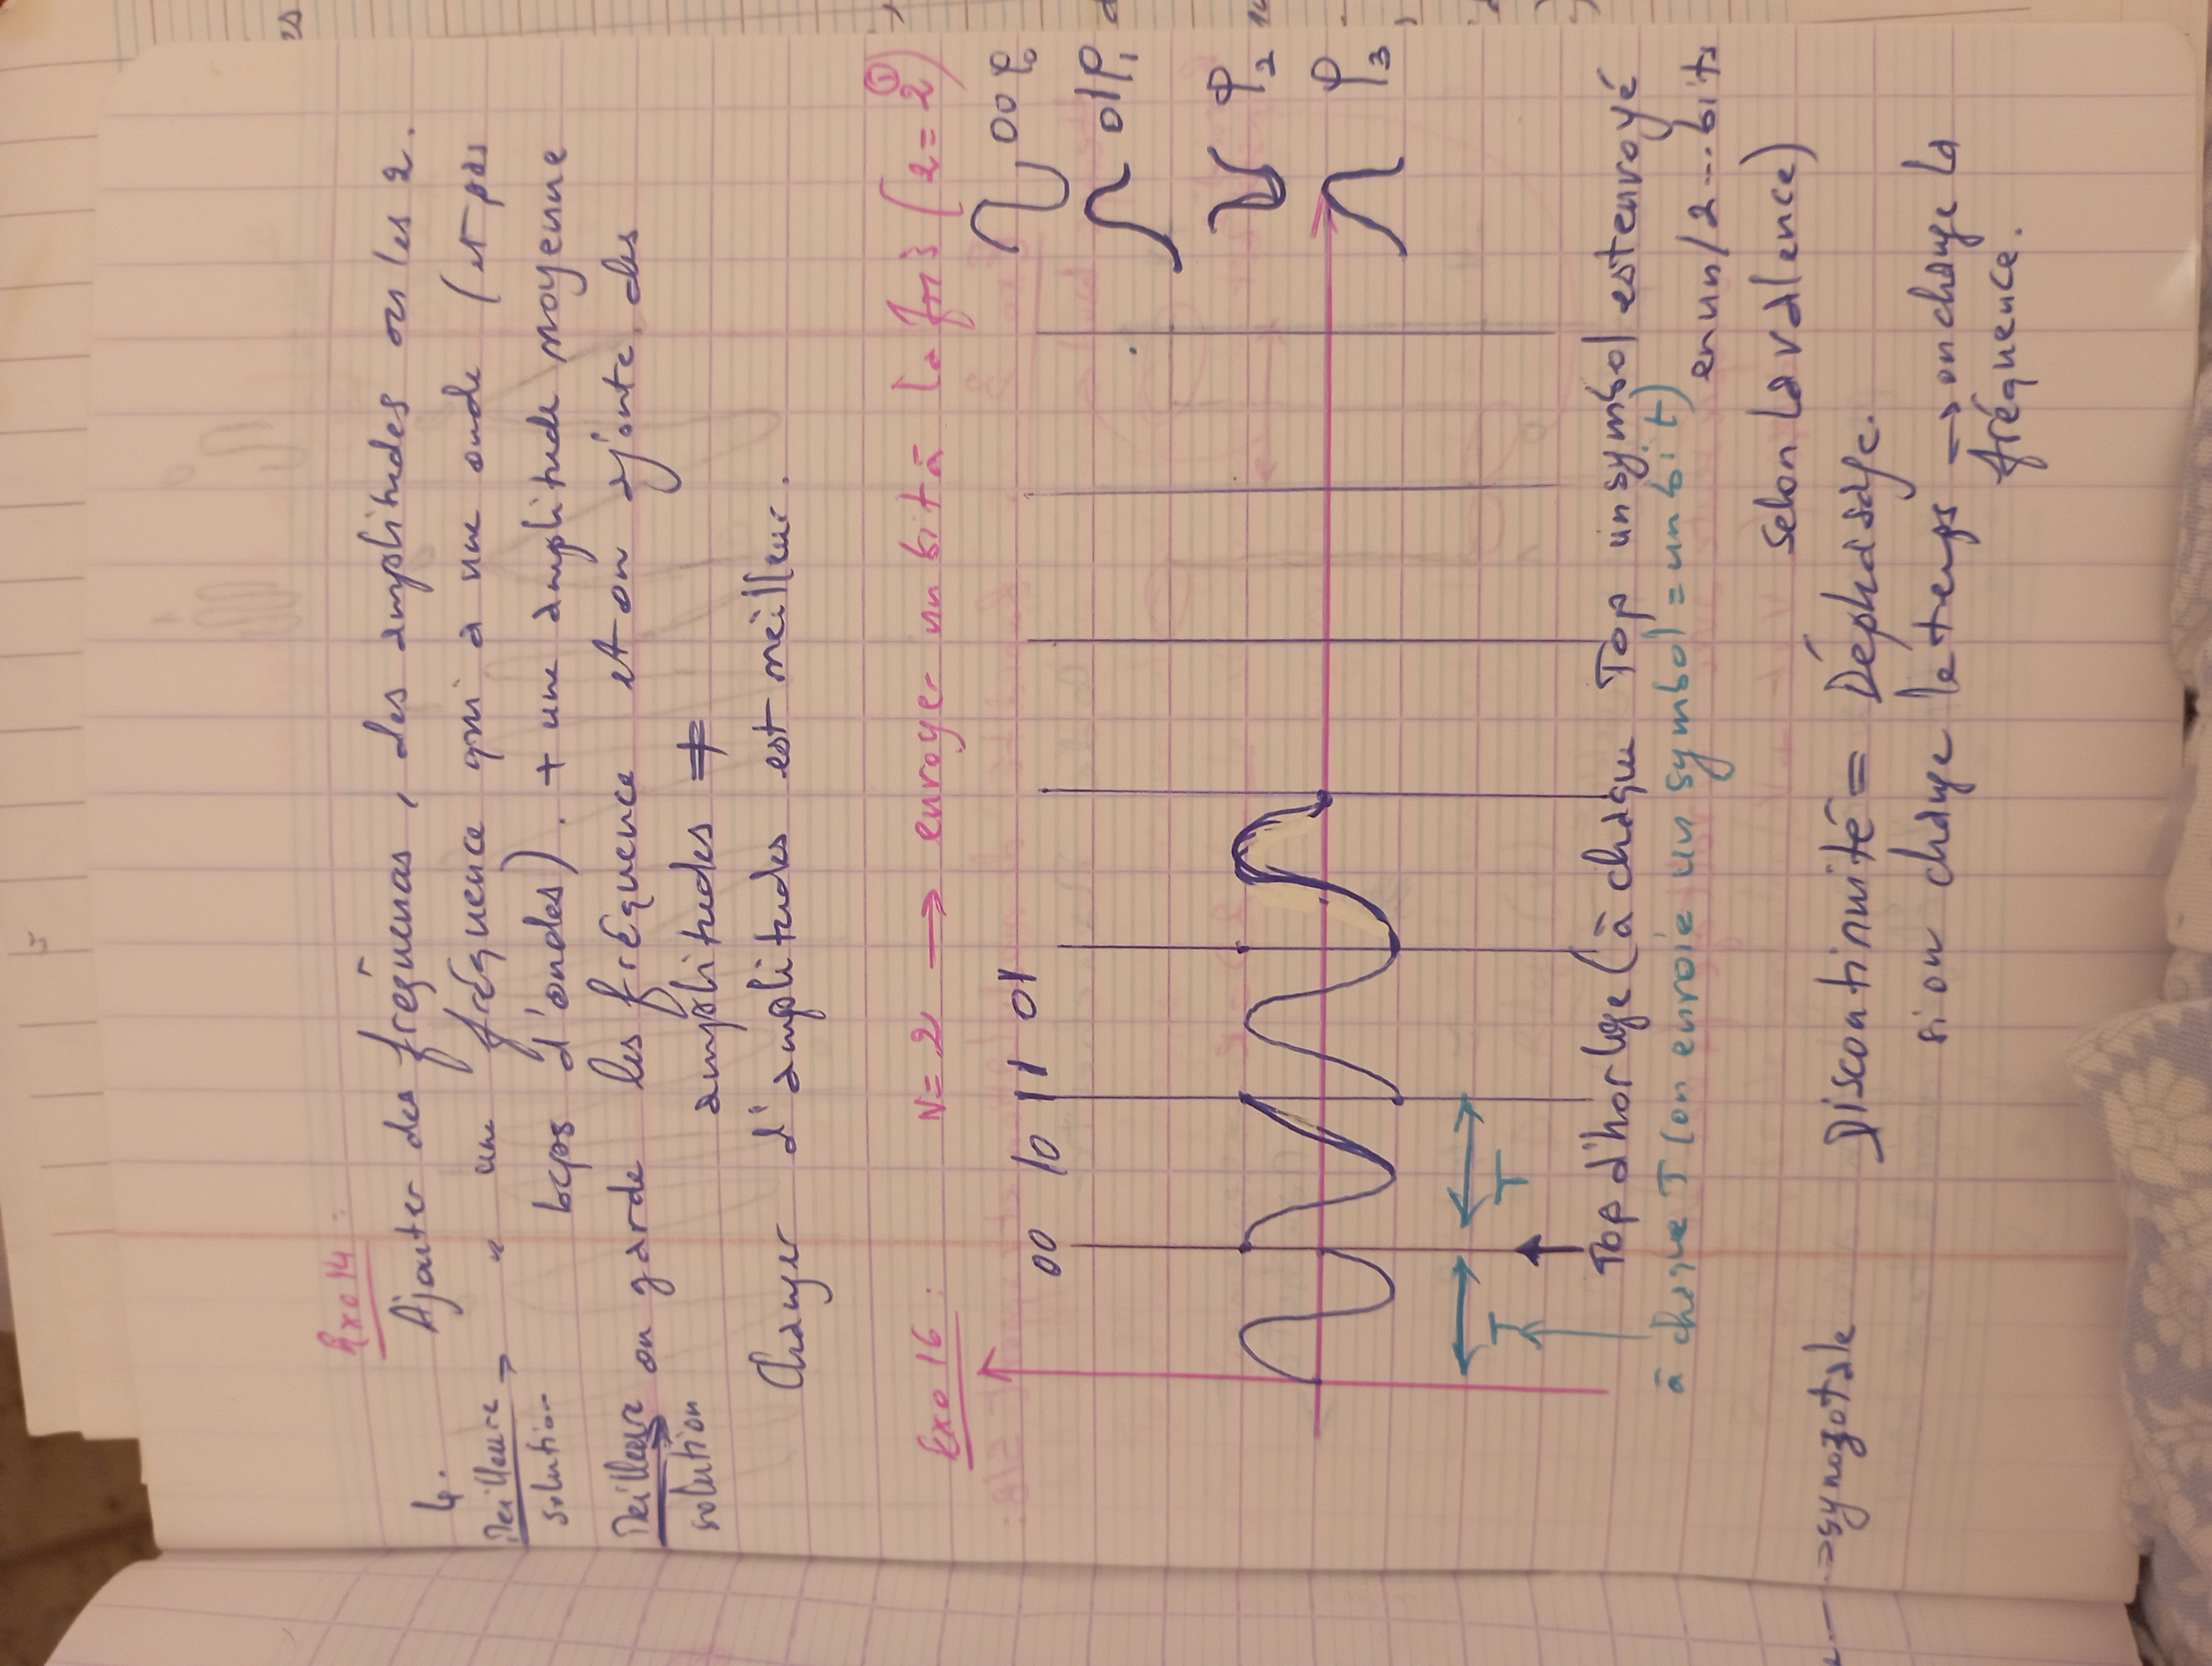 Exo 14 :
4. Ajouter des fréquences, des amplitudes ou les 2.
Meilleure → " une fréquence qui a une onde (et pas
solution bcps d'ondes). + une amplitude moyenne
Meilleure on garde les fréquence et on ajoute des
solution amplitudes ≠
Changer d'amplitudes est meilleur.
Exo 16 : N = 2 → envoyer un bit à la fois (2 = 2①)
00 10 11 01
00 φ0
01 φ1
φ2
φ3
T T
Top d'horloge (à chaque Top un symbol est envoyé
en un/2...bits
à chaque T (on envoie un symbol = un bit)
selon la valence)
→ synogotale
Discontinuité = Déphasage.
si on change le temps → on change la
fréquence.